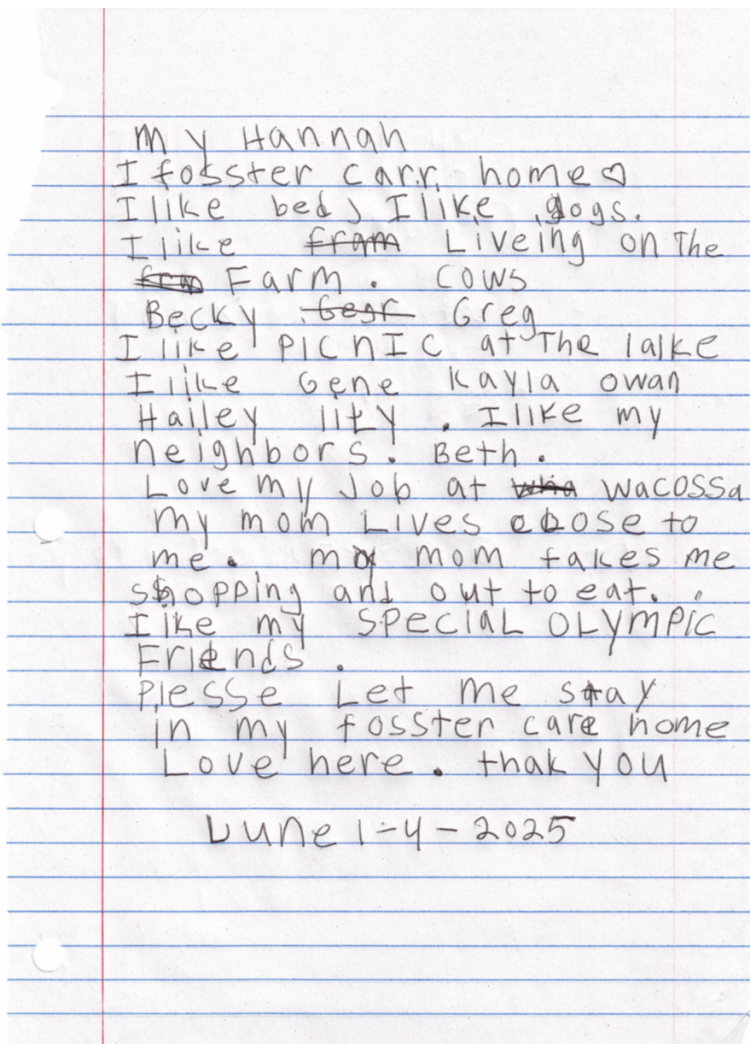 My Hannah
I fosster carr home♡
I like bed, I like dogs.
I like fram Liveing on The
frm Farm. Cows
Becky Gegr Greg
I like PICnIC at The lalke
I like Gene Kayla owan
Hailey lity. I like my
neighbors. Beth.
Love my Job at wacossa
my mom Lives close to
me. my mom takes me
shopping and out to eat.
I like my SPECIAL OLYMPIC
Friends.
Plesse Let me stay
in my fosster care home
Love here. thak you
June 1-4-2025